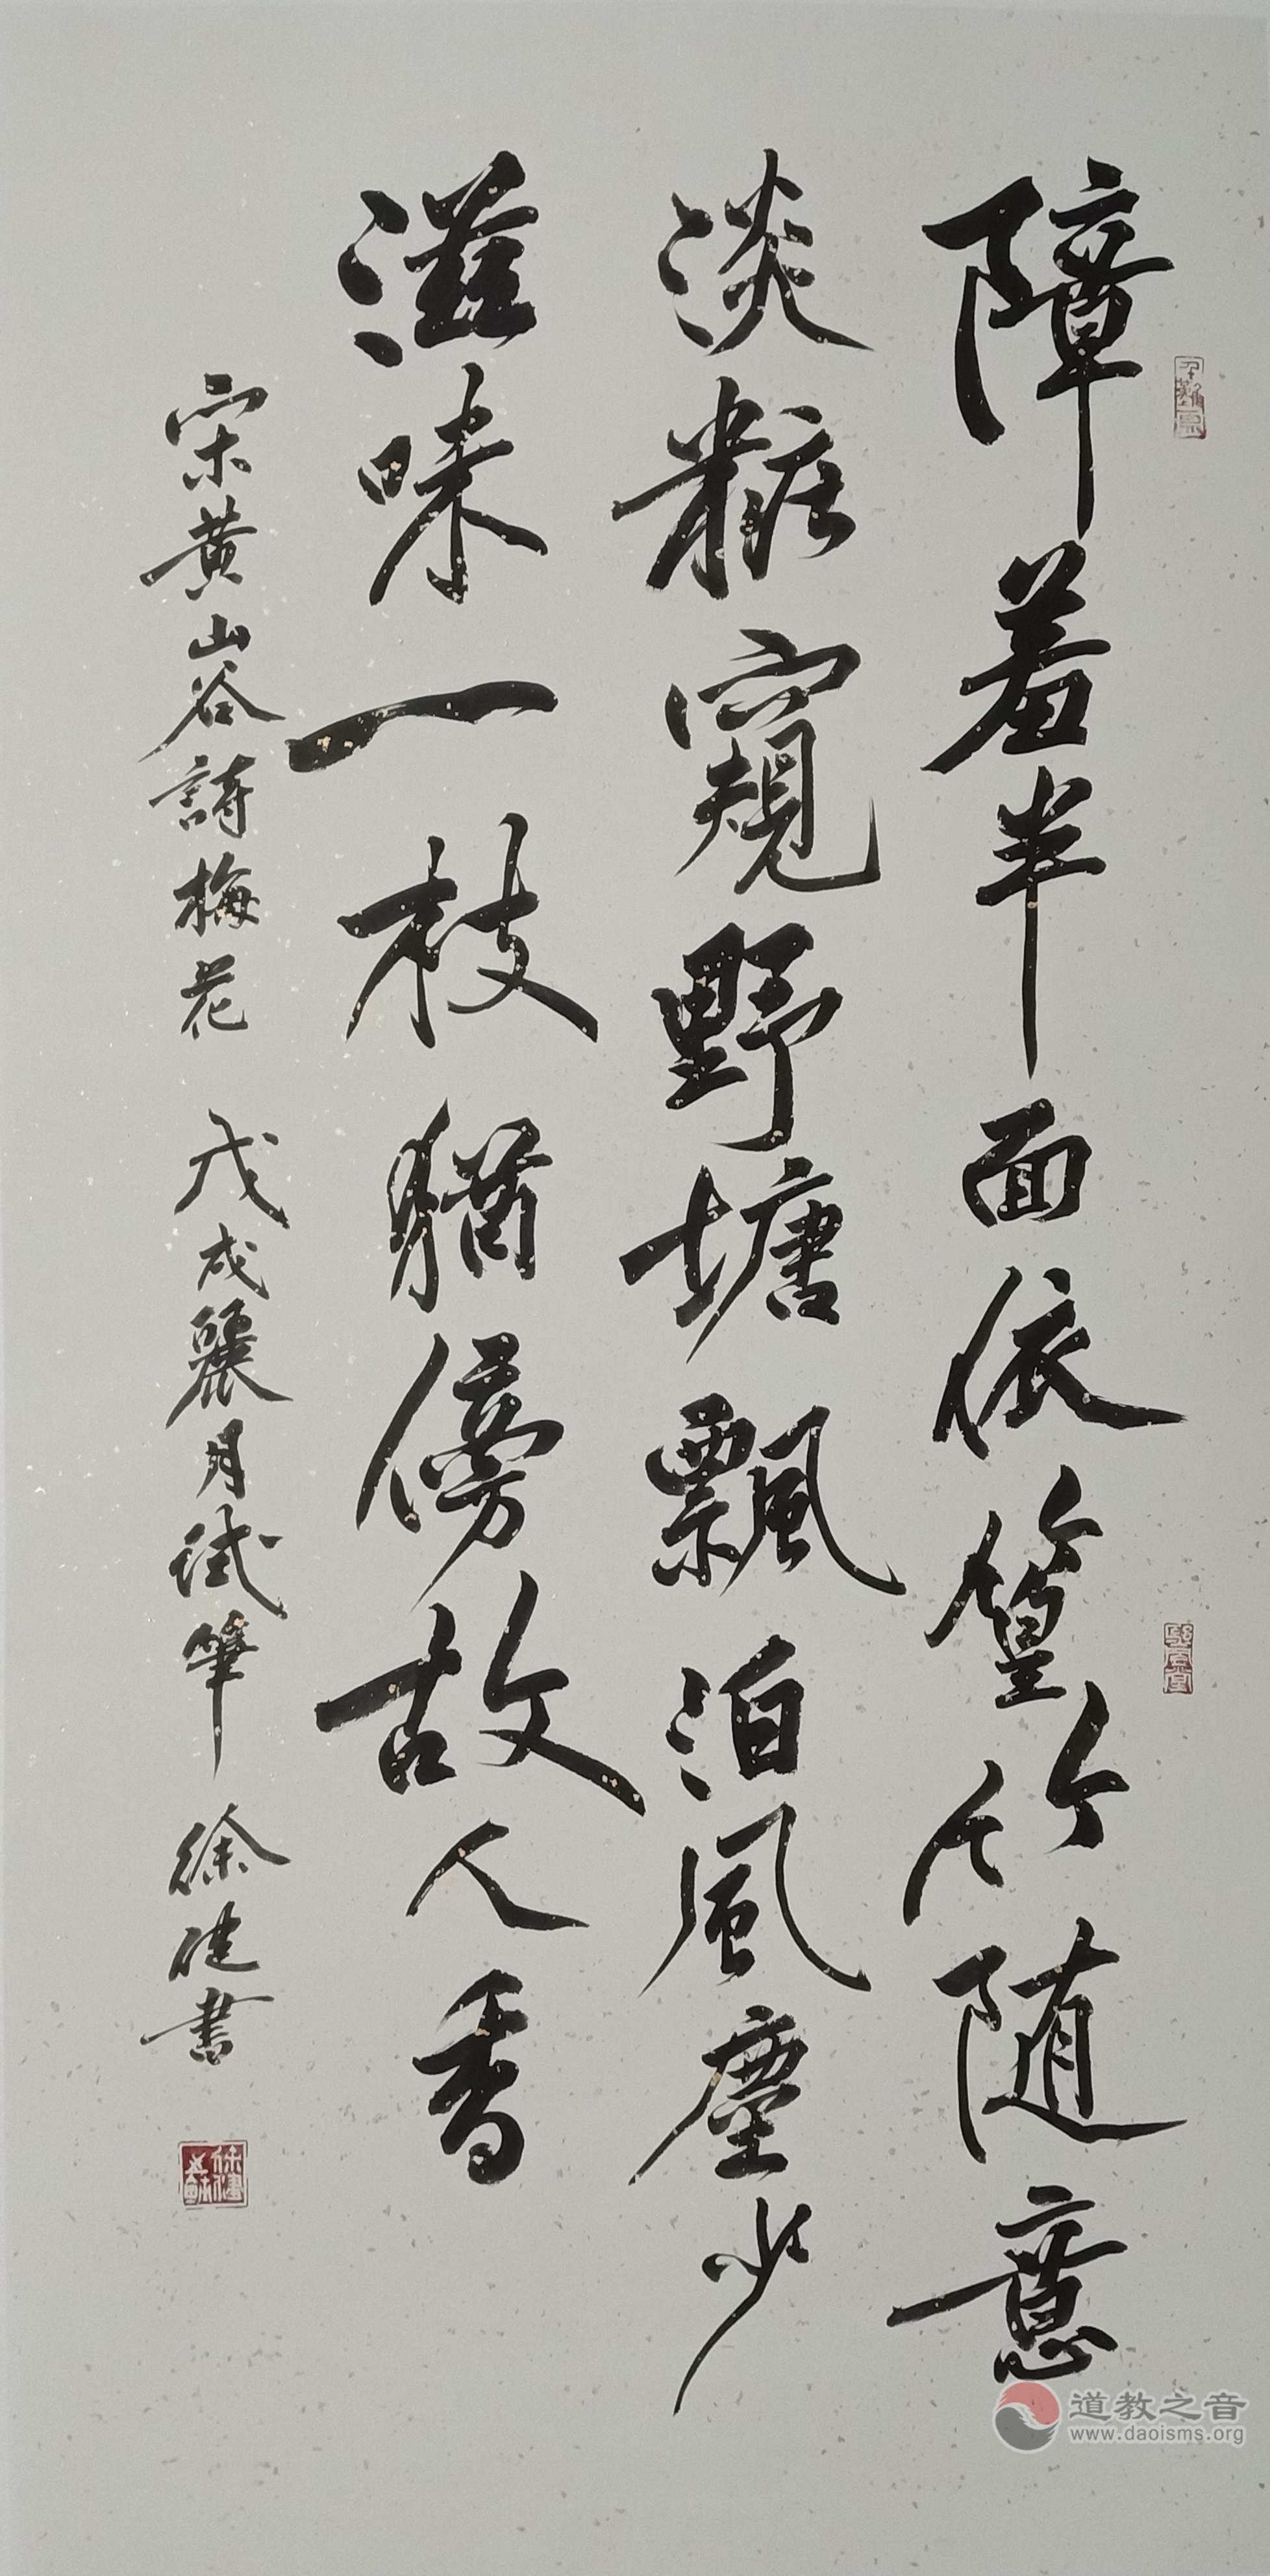 障羞半面依篁竹随意
淡糚窺野塘飄泊風塵少
滋味一枝猶傍故人香
宋黄山谷詩梅花 戊戌麗月試筆 徐健書
道教之音
www.daoisms.org